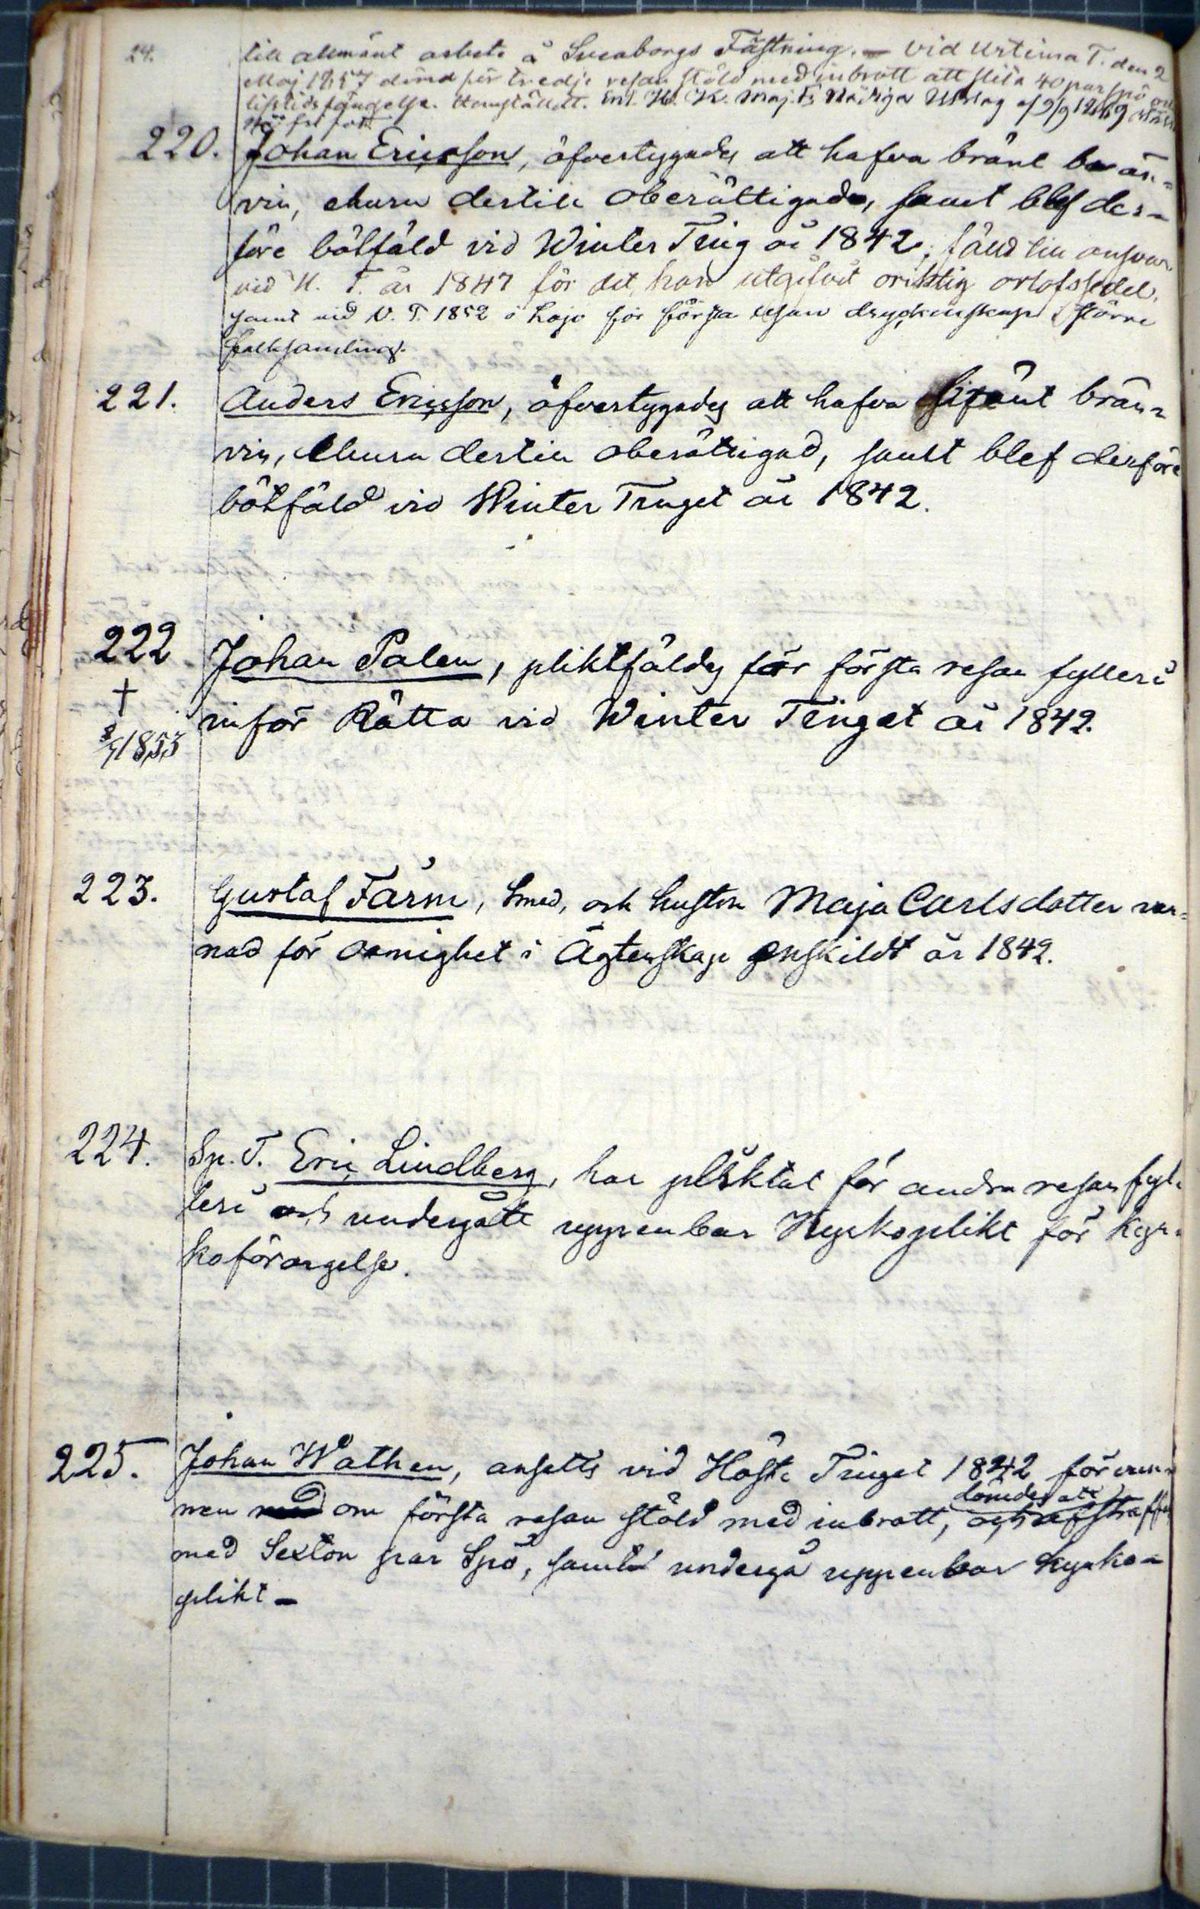 24.
till allmänt arbete å Sveaborgs Fästning. — Vid Urtima T. den 2
Maj 1857 dömd för tredje resan stöld med inbrott att slita 40 par spö och
lifstids fängelse. Hemstäldt. Enl. H. K. Maj:ts Nådiga Utslag af 9/9 1859
220. Johan Ericsson, öfvertygades att hafva bränt brän=
vin, ehuru dertill oberättigade, samt blef der=
före bötfäld vid Winter Ting år 1842, fäld till ansvar
vid H. T. år 1847 för det han utgifvit oriktig orlofssedel,
samt vid V. T. 1852 i Lojo för första resan dryckenskap i större
folksamling.
221. Anders Ericsson, öfvertygades att hafva bränt brän=
vin, Ehuru dertill oberättigad, samt blef derföre
bötfäld vid Winter Tinget år 1842.
222 Johan Palen, pliktfäldes för första resan fylleri
† inför Rätta vid Winter Tinget år 1842.
1855
223. Gustaf Färm, Smed, och hustru Maja Carlsdotter var=
nad för oenighet i Ägtenskap enskildt år 1842.
224. Sp. T. Eric Lindberg, har pliktat för andra resan fyl=
leri och undergått uppenbar Kyrkoplikt för kyr=
koförargelse.
225. Johan Wathen, ansetts vid Höste Tinget 1842 förvun=
nen med om första resan stöld med inbrott, och afstraffa
dömdes att
med Sexton par Spö, samt undergå uppenbar kyrko=
plikt –